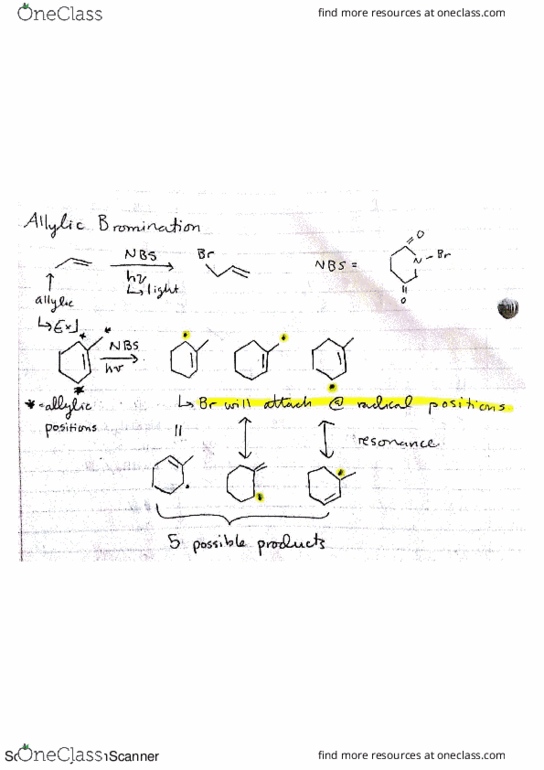 OneClass
find more resources at oneclass.com
Allylic Bromination
NBS
hν
↳ light
Br
NBS =
O
N - Br
O
allylic
↳ Ex].
NBS
hν
* = allylic
positions
↳ Br will attach @ radical positions
resonance
5 possible products
OneClass
Scanner
find more resources at oneclass.com